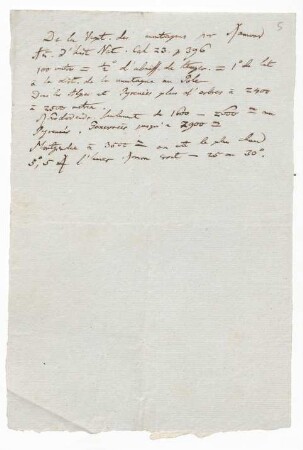 5
De la Végét. des montagnes par Ramond
An. d'hist. Nat. Cah 23. p 396
100 mètres = ½° d'abaiss. de = 1° de lat
à la dist. de la montagne au Pole
Dans les Alpes et Pyrenées plus d'arbres à 2400
a 2500 mètres.
Rhododendr. seulement de 1600 – 2600 m au
Pyrenées, jusqu'à 2900 m
à 3500 m où été le plus chaud
5°,5 l'hiver Ramond croit – 25 ou 30°.